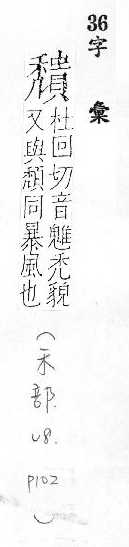 36字彙
穨
杜回切音魋禿貌
又與頹同暴風也
(禾部. 08. P102)